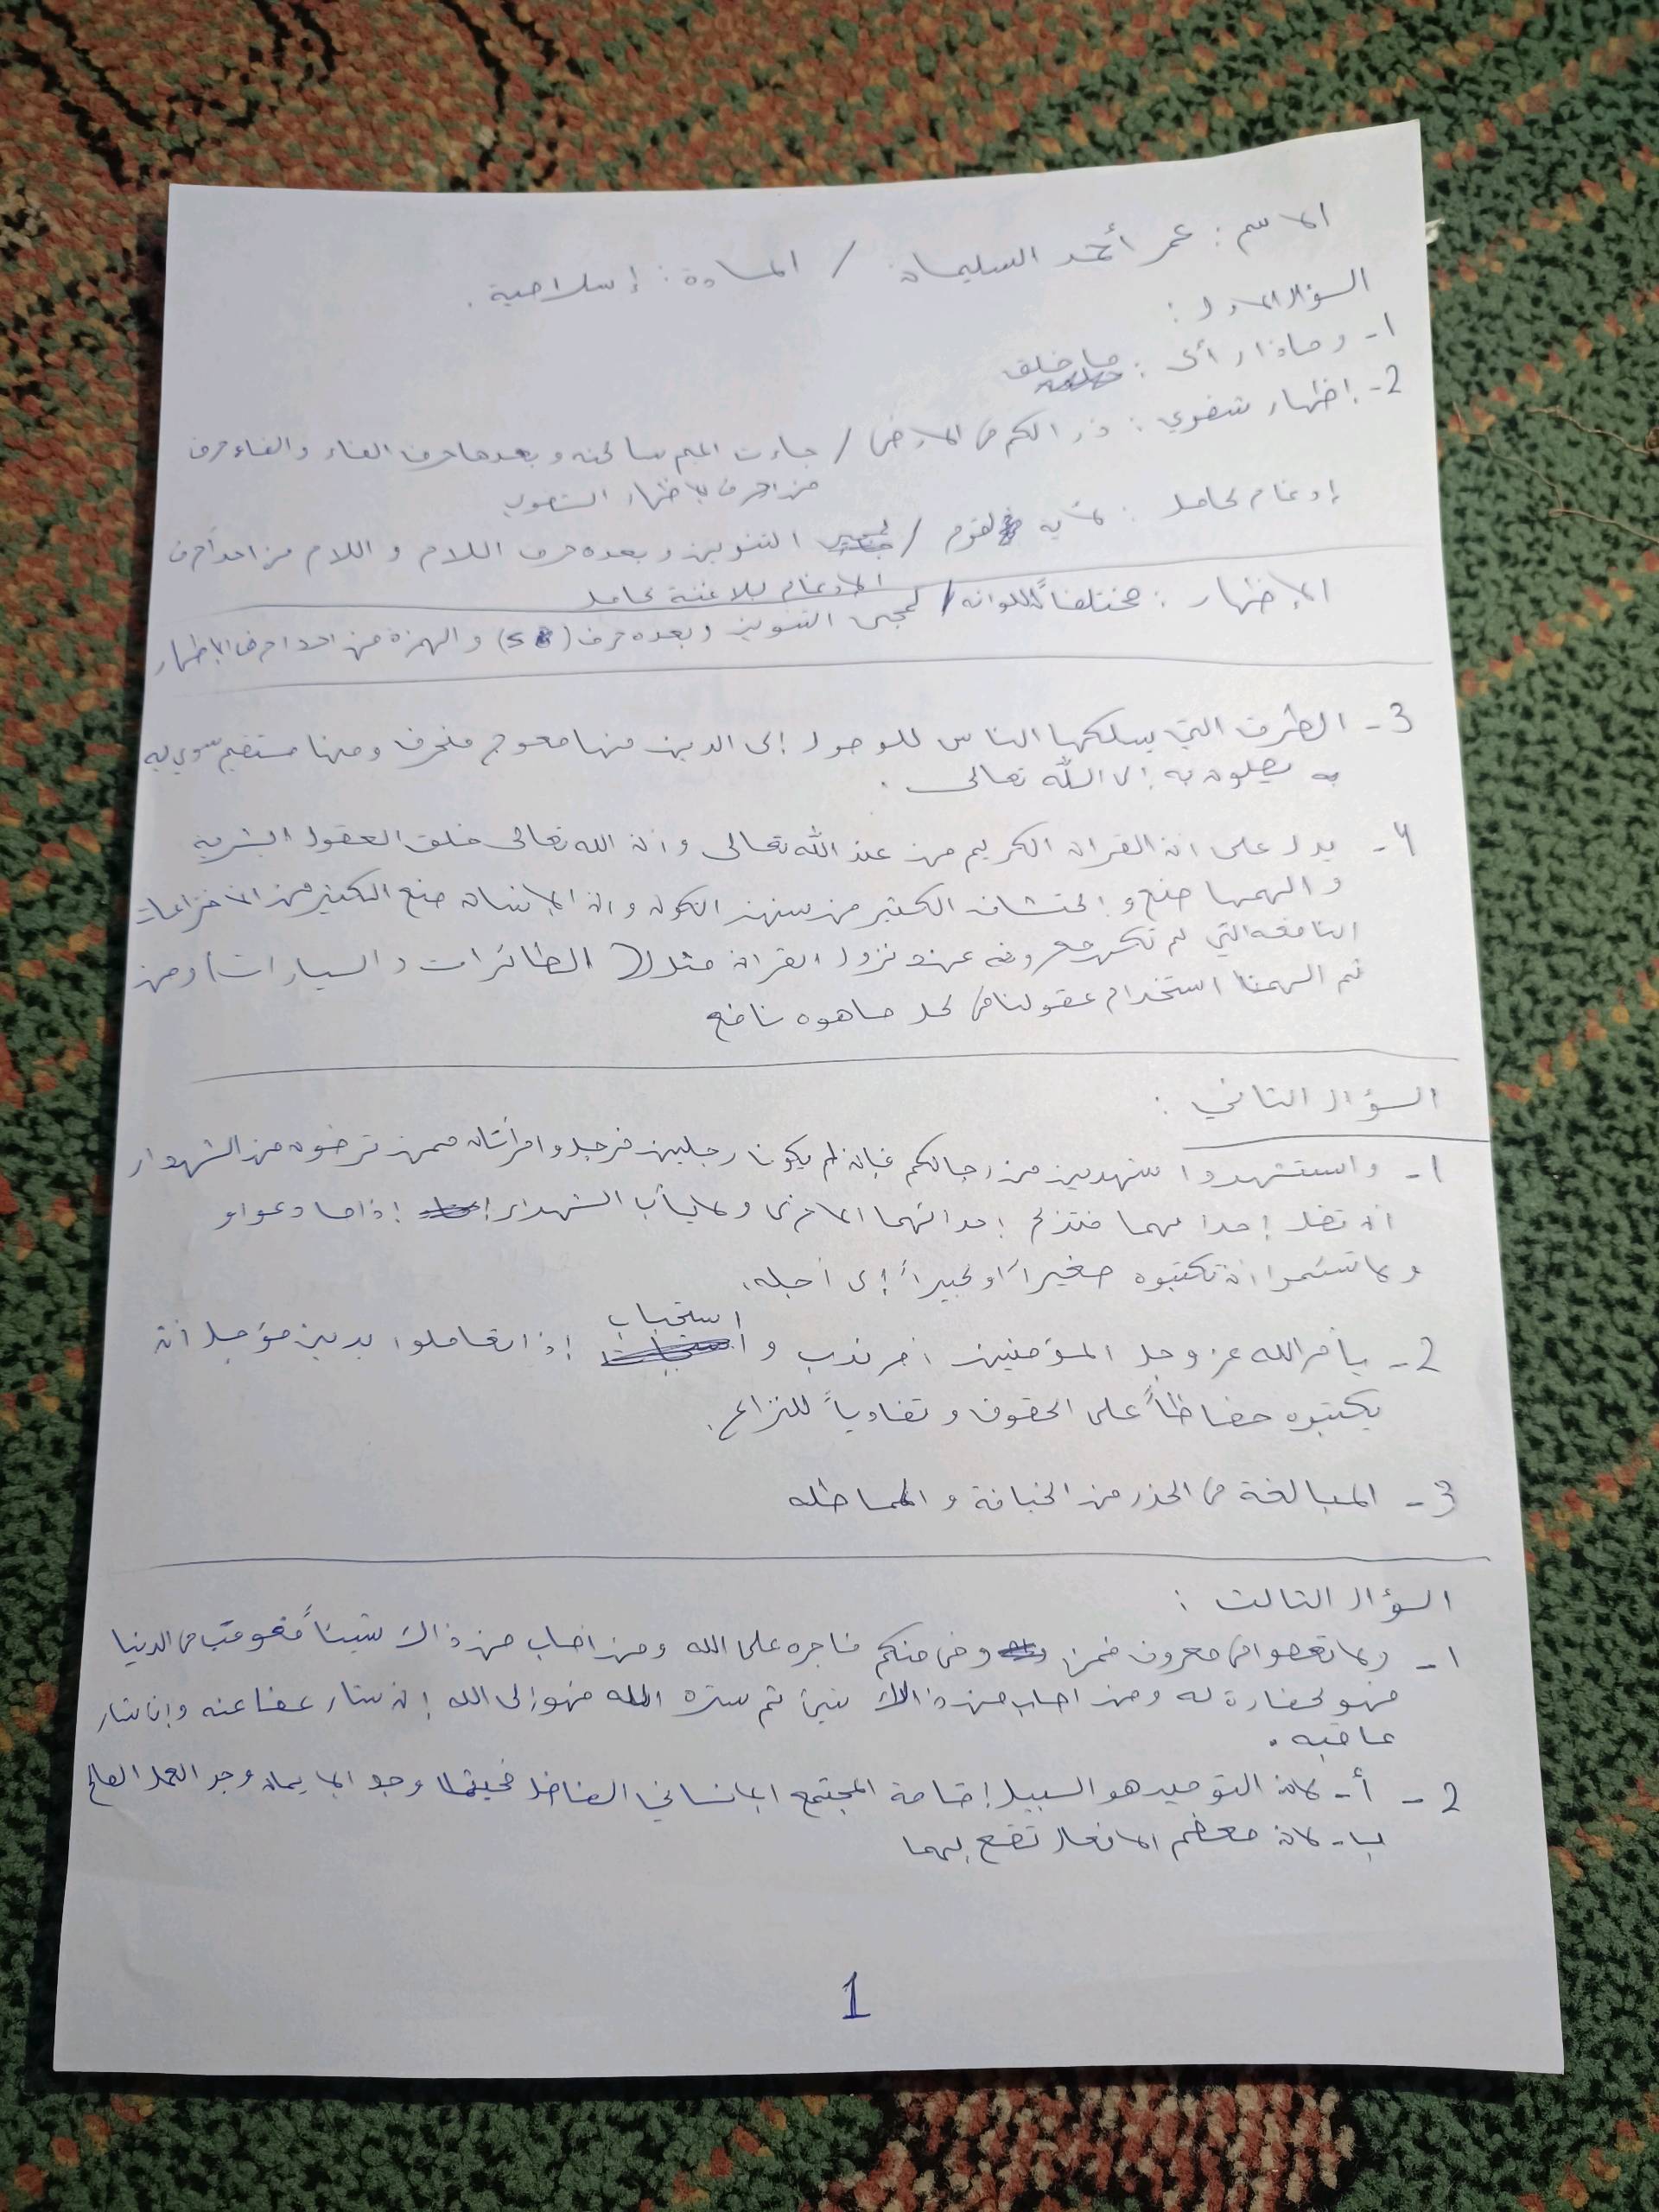 الاسم : عمر أحمد السليمان / المادة : إسلامية .
السؤال الاول :
1- وماذا رأى : ما خلق
2- إظهار شفوي : ذرا لكم في الارض / جاءت الميم ساكنه وبعدها حرف الفاء والفاء حرف
من احرف الاظهار الشفوي
إدغام كامل : لآيه لقوم / التنوين وبعده حرف اللام و اللام من احد أحرف
الادغام بلا غنة كامل
الإظهار : مختلفاً الوانه / لمجئ التنوين وبعده حرف (ء) والهمزة من احد احرف الاظهار
3- الطرق التي يسلكها الناس للوصول إلى الدين منها معوج منحرف ومنها مستقيم سوي
يصلون به إلى الله تعالى .
4- يدل على ان القران الكريم من عند الله تعالى وان الله تعالى خلق العقول البشرية
والهمها صنع و اكتشاف الكثير من سنن الكون وان الانسان صنع الكثير من الاختراعات
النافعه التي لم تكن معروفه عند نزول القران مثل (الطائرات والسيارات) ومن
ثم الهمنا استخدام عقولنا في كل ماهوه نافع
السؤال الثاني :
1- واستشهدوا شهدين من رجالكم فإن لم يكونا رجلين فرجل وامرأتان ممن ترضون من الشهداء
ان تضل إحداهما فتذكر إحدائهما الاخرى ولا يأب الشهداء إذا ما دعواو
ولا تسئموا ان تكتبوه صغيراً او كبيراً إلى أجله.
2- يأمر الله عز وجل المؤمنين امر ندب و استحباب إذا تعاملوا بدين مؤجل أن
يكتبوه حفاظاً على الحقوق وتفادياً للنزاع.
3- المبالغة في الحذر من الخيانة و المماطله
السؤال الثالث :
1- ولا تعصوا في معروف فمن وفى منكم فاجره على الله ومن اصاب من ذاك شيئاً فعوقب في الدنيا
فهو كفارة له ومن اصاب من ذالك شيئ ثم ستره الله فهو إلى الله إن شار عفا عنه وإن شار
عاقبه .
2- أ- لان التوحيد هو السبيل إقامة المجتمع الانساني الفاضل فحيثما وجد الايمان وجد العمل الصالح
ب- لان معظم الافعال تقع بهما
1